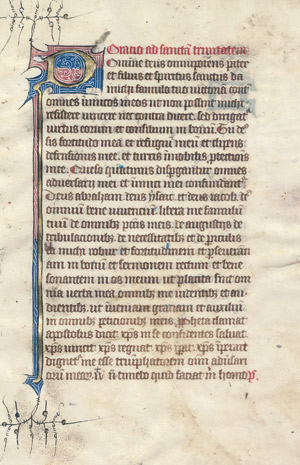 Oratio ad sanctam trinitatem
Domine deus omnipotens pater
et filius et spiritus sanctus da
michi famulo tuo victoria cont
omnes inimicos meos ut non possint michi
resistere nocere nec contra dicere sed dirigat
virtus eorum et consilium in bonum Tu de
us fortitudo mea et refugium meum et clipeus
defensionis mee et turris inmobilis protectionis
mee Queso quatinus dispergantur omnes
adversarii mei et inimici mei confundantur
Deus abraham deus ysaac et deus iacob de
omnium bene viventium libera me famulum
tuum de omnibus pctis meis de angustijs de
tribulacionibz de necessitatibz et de periculis
da michi robur et fortitudinem et perseueran
am in bonum et sermonem rectum et bene
sonantem in os meum ut placita sint om
nia verba mea omnibz me videntibz et au
dientibz ut inueniam gratiam et auxilium
in omnibz peticionibz meis propheta clamat
apostolus dicit xps in se confitentes saluat
xps vincit xps regnat xps imperat
dignet me esse triumphatorem cum aduersari
orum meorum non timebo quid faciat michi homo